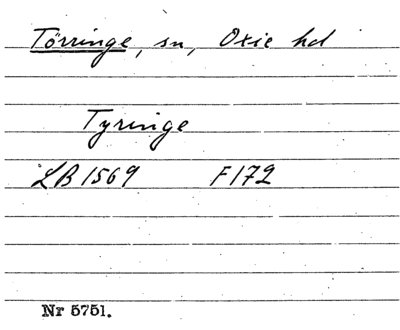 Törringe, sn, Oxie hd
Tyringe
LB 1569 F172
Nr 5751.